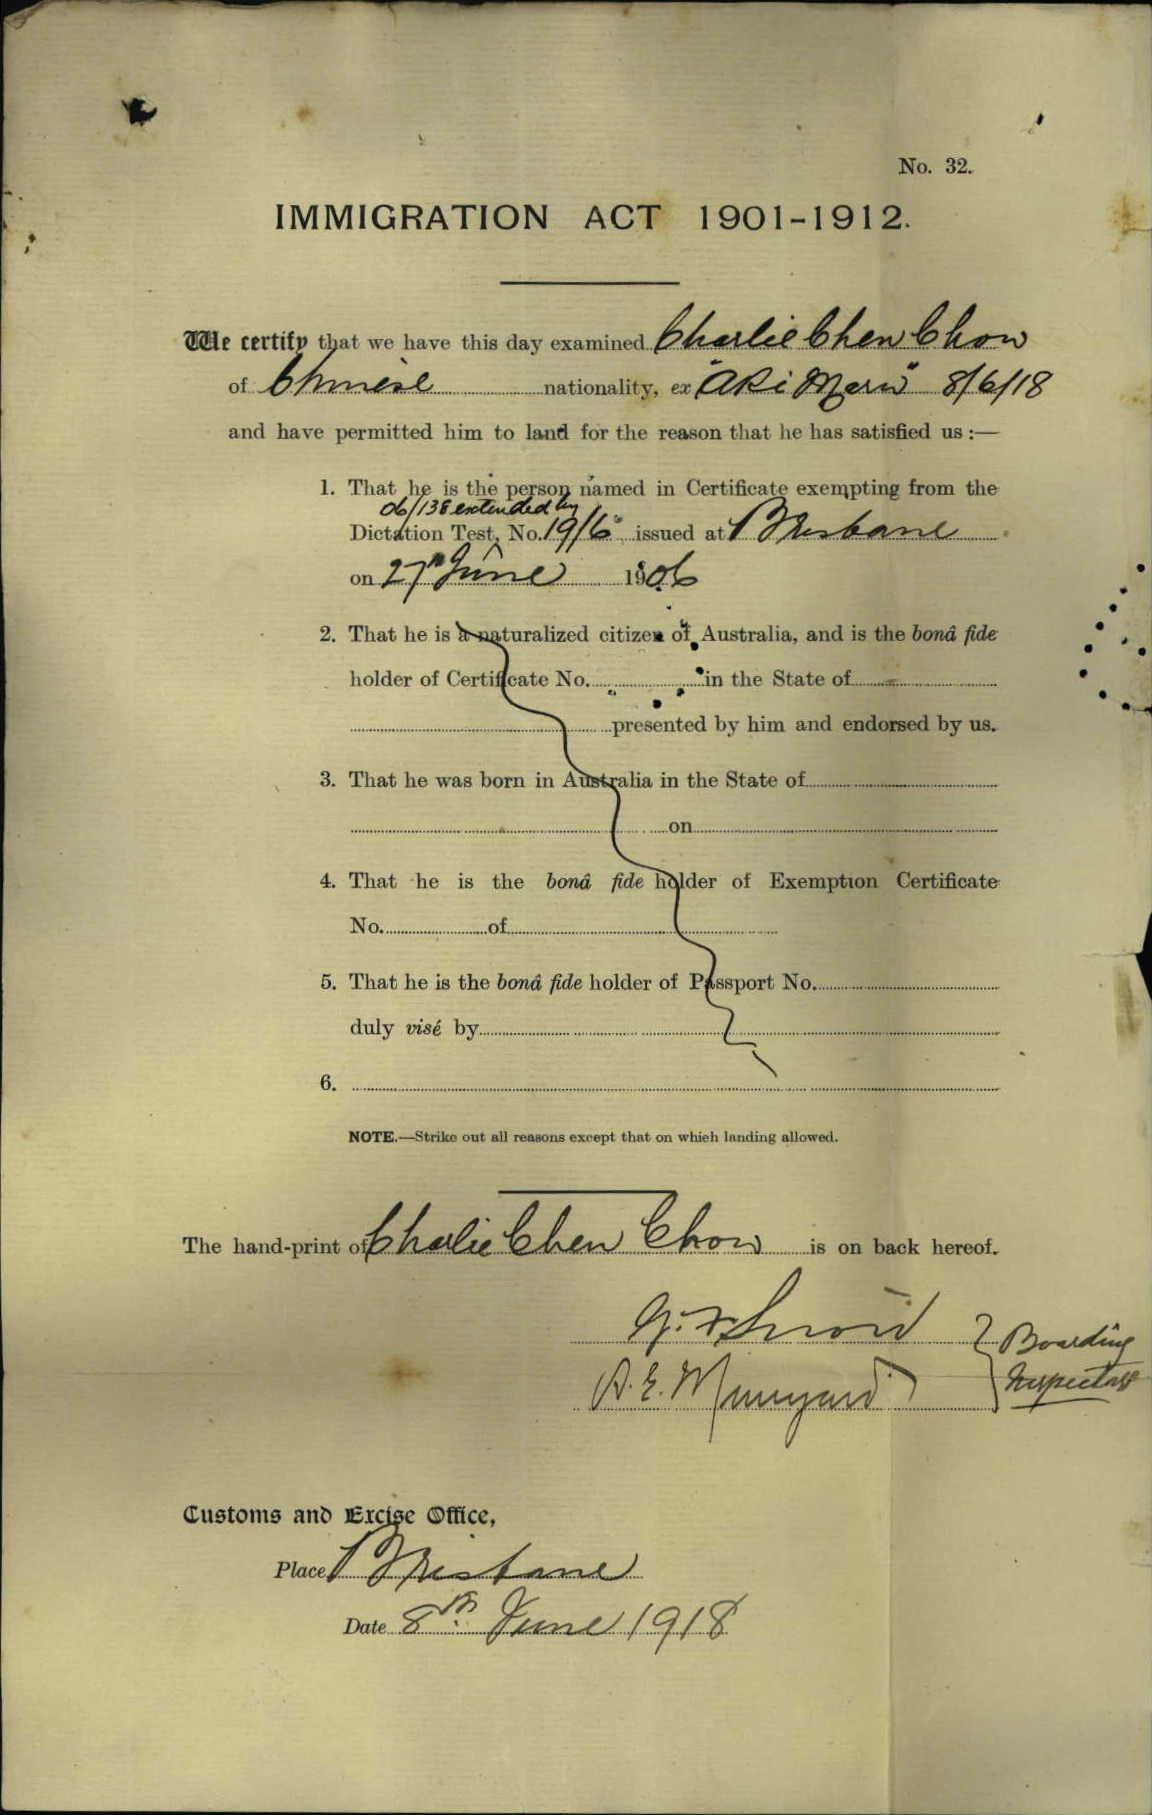 No. 32.
IMMIGRATION ACT 1901-1912.
We certify that we have this day examined Charlie Chen Chow
of Chinese nationality, ex "Aki Maru" 8/6/18
and have permitted him to land for the reason that he has satisfied us :—
1. That he is the person named in Certificate exempting from the
06/138 extended by
Dictation Test, No. 19/6 issued at Brisbane
on 27th June 1906
2. That he is a naturalized citizen of Australia, and is the bonâ fide
holder of Certificate No. in the State of
presented by him and endorsed by us.
3. That he was born in Australia in the State of
on
4. That he is the bonâ fide holder of Exemption Certificate
No. of
5. That he is the bonâ fide holder of Passport No.
duly visé by
6.
NOTE.—Strike out all reasons except that on which landing allowed.
The hand-print of Charlie Chen Chow is on back hereof.
Boarding
A. E. Munyard Inspectors
Customs and Excise Office,
Place Brisbane
Date 8th June 1918